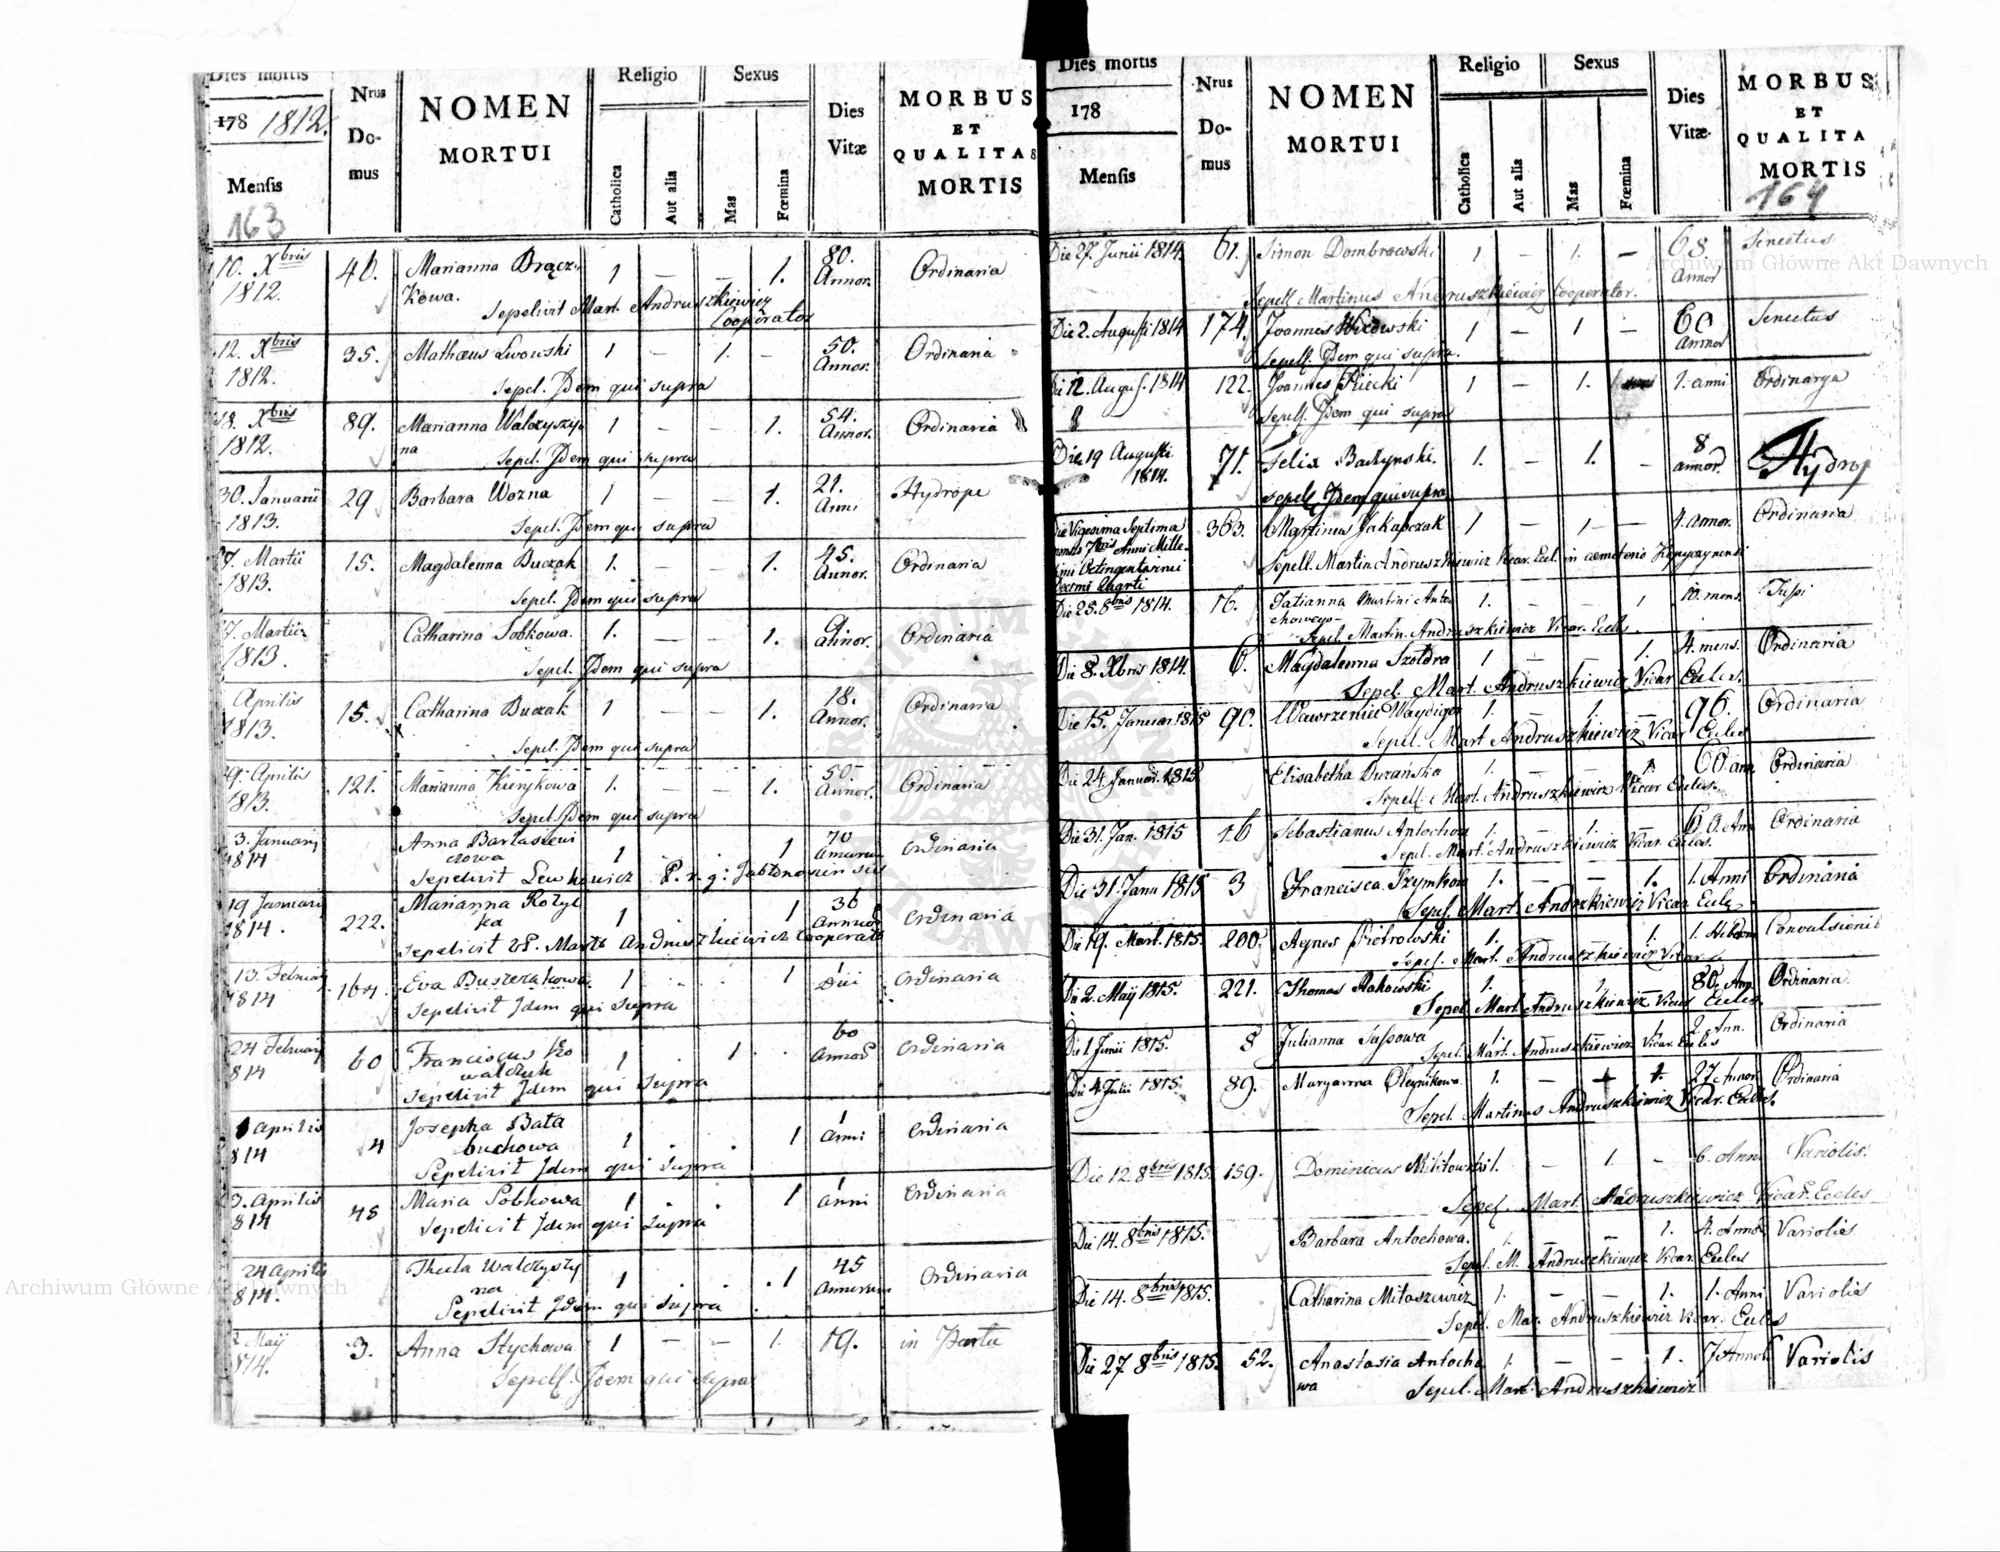 Dies mortis
178 1812.
Mensis
163
Nrus
Do-
mus
NOMEN
MORTUI
Religio
Catholica
Aut alia
Sexus
Mas
Fœmina
Dies
Vitæ
MORBUS
ET
QUALITAS
MORTIS
10. Xbris 1812. 46. Marianna Brącz- 1 — — 1. 80. Annor. Ordinaria
kowa.
Sepelivit Mart. Andruszkiewicz
Cooperator
12. Xbris 1812. 35. Mathæus Lwowski 1 — 1. — 50. Annor. Ordinaria
Sepel. Idem qui supra
18. Xbris 1812. 89. Marianna Walczyszy- 1 — — 1. 54. Annor. Ordinaria
na
Sepel. Idem qui supra
30. Januarii 1813. 29 Barbara Wozna 1 — — 1. 21. Anni Hydrope
Sepel. Idem qui supra
7. Martii 1813. 15. Magdalenna Buczak 1. — — 1. 45. Annor. Ordinaria
Sepel. Idem qui supra
7. Martii 1813. Catharina Sobkowa. 1. — — 1. Annor. Ordinaria
Sepel. Idem qui supra
Aprilis 1813. 15. Catharina Buczak 1 — — 1. 18. Annor. Ordinaria
Sepel. Idem qui supra
9. Aprilis 1813. 121. Marianna Kierykowa 1. — — 1. 50. Annor. Ordinaria
Sepel. Idem qui supra
3. Januarij 1814 Anna Bartasiewi 1 . . 1 70 Annorum Ordinaria
czowa
Sepelivit Lewkowicz P. r. g: Jabłonosinensis
19 Januarij 1814. 222. Marianna Kozyc 1 . . 1 36 Annor Ordinaria
ka
Sepelivit Mart Andruszkiewicz Cooperator
13. Februarij 1814 164. Eva Buszczakowa 1 . . 1 1 Diei Ordinaria
Sepelivit Idem qui supra
24 Februarij 814 60 Franciscus Ko 1 . 1 . 60 Annor Ordinaria
walczuk
Sepelivit Idem qui supra
1 Aprilis 814 4 Josepha Bata 1 . . 1 1 Anni Ordinaria
buchowa
Sepelivit Idem qui supra
3. Aprilis 814 48 Maria Sobkowa 1 . . 1 1 Anni Ordinaria
Sepelivit Idem qui supra
24 Aprilis 814. Thecla Walczyszy 1 . . 1 45 Annorum Ordinaria
na
Sepelivit Idem qui supra
2 Maij 814. 3. Anna Stychowa 1 — — 1. 19. in Partu
Sepell. Idem qui supra
Dies mortis
178
Mensis
Nrus
Do-
mus
NOMEN
MORTUI
Religio
Catholica
Aut alia
Sexus
Mas
Fœmina
Dies
Vitæ
MORBUS
ET
QUALITA
MORTIS
164
Die 27. Junii 1814. 61. Simon Dombrowski 1 — 1. — 68. Annor Senectus
Sepell Martinus Andruszkiewicz Cooperator.
Die 2. Augusti 1814 174. Joannes 1 — 1 — 60 Annor Senectus
Sepell. Idem qui supra.
Die 12. Augus. 1814 122. Joannes 1 — 1. 1. anni Ordinarya
Sepell. Idem qui supra
Die 19 Augusti 1814. 71. Felix Baczynski. 1. — 1. — 8 annor. Hydrop
Sepell Idem qui supra
Die Vigesima Septima 363. Martinus Jakabczak 1 — 1 — 4. Annor. Ordinaria
mensis 7bris Anni Mille-
simi Octingentesimi
Decimi Quarti
Sepell. Martin Andruszkiewicz Vicar. Eccl. in cæmeterio Kopyczynensi
Die 28. 8bris 1814. 16. Tatianna Martini Anto 1. — — 1 10. mens. Tussi
chowego
Sepel. Martin. Andruszkiewicz Vicar. Eccles.
Die 8. Xbris 1814. 6. Magdalenna Szoldra 1 — — 1. 4. mens. Ordinaria
Sepel. Mart. Andruszkiewicz Vicar Eccles.
Die 15. Januar. 1815 90. Wawrzeniec Waydiger 1. — 1. — 96. Ordinaria
Sepel. Mart Andruszkiewicz Vicar Eccles
Die 24. Januar. 1815 Elisabetha Duzańska 1. — — 1 60. ann. Ordinaria
Sepell. Mart. Andruszkiewicz Vicar Eccles.
Die 31. Jan. 1815 16 Sebastianus Antochow 1. — 1. — 60. Ann Ordinaria
Sepel. Mart. Andruszkiewicz Vicar. Eccles.
Die 31. Janu 1815 3 Francisca Szymkow 1. — — 1. 1. Anni Ordinaria
Sepel. Mart. Andrzkiewicz Vicar. Eccles
Die 19. Mart. 1815. 200. Agnes Piotrowski 1. 1. 1. Hebdom Convulsionis
Sepel. Mart. Andruszkiewicz Vicar
Die 2. Maij 1815. 221. Thomas Rakowski 1. 1. 80. Ann. Ordinaria.
Sepel. Mart. Andruszkiewicz Vicar Eccles.
Die 1 Junii 1815. 8 Julianna Sassowa 1. — — 1. 2. Ann. Ordinaria
Sepel. Mart. Andruszkiewicz Vicar. Eccles
Die 4 Julii 1815. 89. Maryanna Oleynikowa 1. — 1. 27 Annor Ordinaria
Sepel. Martinus Andruszkiewicz Vicar. Eccles.
Die 12. 8bris 1815. 159. Dominicus Militowski 1. — 1. — 6. Ann Variolis.
Sepel. Mart. Andruszkiewicz Vicar. Eccles
Die 14. 8bris 1815. Barbara Antochowa. 1. — — 1. 4. Annor Variolis
Sepel. M. Andruszkiewicz Vicar. Eccles
Die 14. 8bris 1815. Catharina Mitaszewicz 1. — — 1. 1. Anni Variolis
Sepel. Mar. Andruszkiewicz Vicar. Eccles
Die 27 8bris 1815. 52. Anastasia Antocho 1. — — 1. 7 Annor Variolis
wa
Sepel. Mart. Andruszkiewicz
Archiwum Główne Akt Dawnych
Archiwum Główne Akt Dawnych
ARCHIWUM GŁÓWNE AKT DAWNYCH